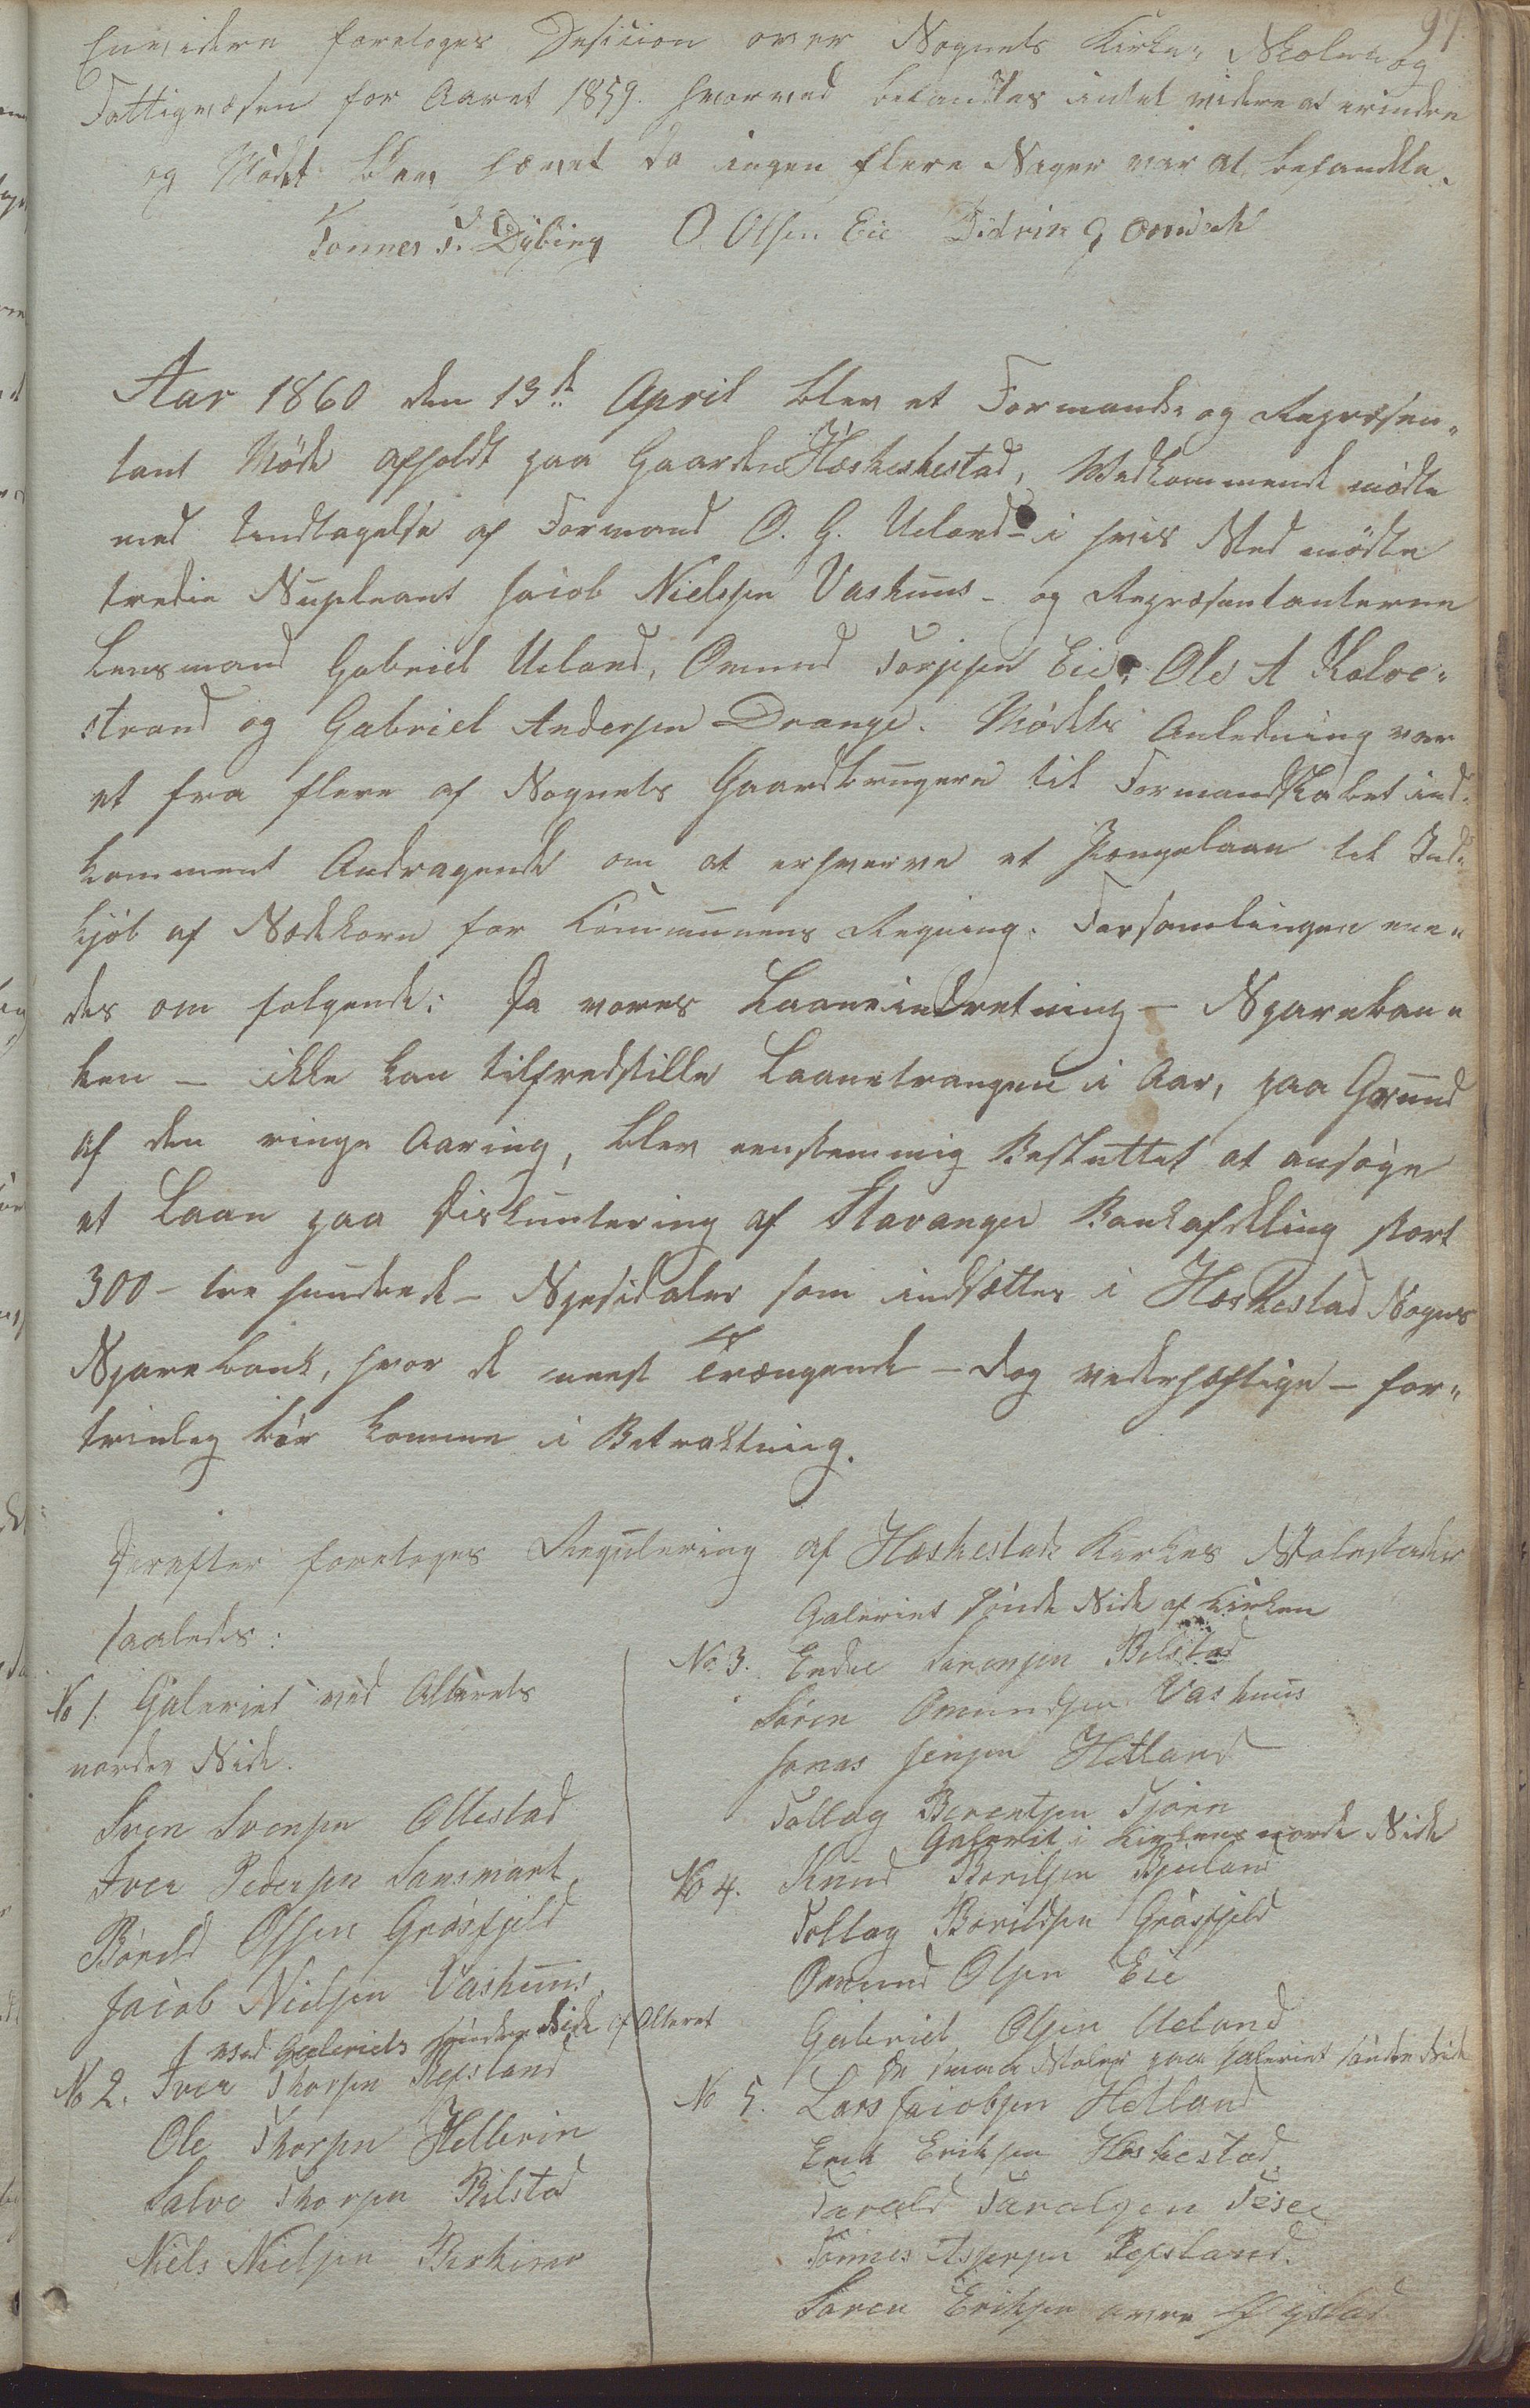 97.
Envidere foretoges Desision over Sognets Kirke, Skole og
Fattigvæsen for Aaret 1859. hvorved befandtes intet videre at erindre
og Mødet blev hævet da ingen flere Sager var at behandle.
Tønnes T. Dybing O. Olsen Eie Didrik
Aar 1860 den 13de April blev et Formands- og Repræsen-
tant Møde afholdt paa Gaarden Heskestad, Vedkommende mødte
med Undtagelse af Formand O. G. Ueland - i hvis Sted mødte
tredie Supleant Jacob Nielsen Vashuus - og Repræsentanterne
Lensmand Gabriel Ueland, Omund Torgesen Eie, Ole A Kolve-
strand og Gabriel Andersen Drange. Mødets Anledning var
et fra flere af Sognets Gaardbrugere til Formandskabet ind-
komment Andragende om at erhverve et Pængelaan til Ind-
kjøb af Sædekorn for Communens Regning. Forsamlingen ene-
des om følgende: Da vores Laaneindretning - Spareban-
ken - ikke kan tilfredstille Laanetrangen i Aar, paa Grund
af den ringe Aaring, blev eenstemmig Besluttet at ansøge
et Laan paa Diskuntering af Stavanger Bankafdeling stort
300 - tre hundrede - Spesidaler som indsættes i Heskestad Sogns
Sparebank, hvor de meest Trængende - dog vederhæftige - for-
trinlig bør komme i Betraktning.
Derefter foretoges Regulering af Heskestads Kirkes Stolestader
saaledes:
No 1. Galeriet ved Alterets
norder Side.
Sven Svensen Ollestad
Iver Pedersen Lansmark
Bårild Olsen Gråsfjeld
Jacob Nielsen Vashuus
ved Galeriets søndre Side af Alteret
No 2. Iver Thorsen Refsland
Ole Thorsen Hellerin
Salve Thorsen Bilstad
Niels Nielsen Birkimo
Galeriet søndre Side af Kirken
No 3. Endre Sørensen Bilstad
Søren Omundsen Vashuus
Jonas Jensen Hetland
Tollag Berentsen Tjørn
Galeriet i Kirkens nordre Side
No 4. Knud Borilsen Bjuland
Tollag Borildsen Gråsfjeld
Omund Olsen Eie
Gabriel Olsen Ueland
De smaa Stoler paa Galeriet søndre Side
No 5. Lars Jacobsen Hetland
Erik Eriksen Heskestad
Tarald Taralsen
Tønnes Asgersen Refsland.
Søren Eriksen øvre